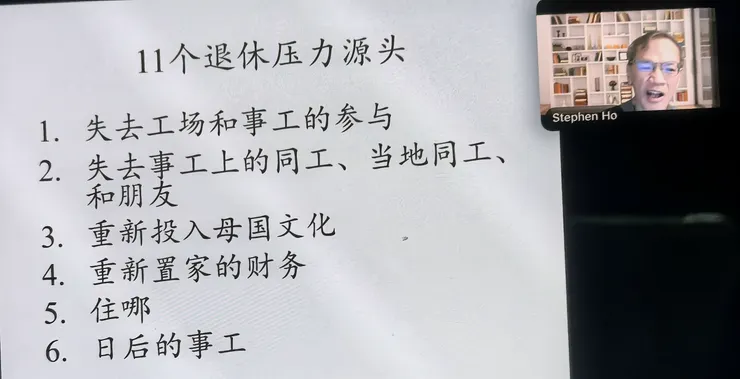 11个退休压力源头
1. 失去工场和事工的参与
2. 失去事工上的同工、当地同工、
和朋友
3. 重新投入母国文化
4. 重新置家的财务
5. 住哪
6. 日后的事工
Stephen Ho